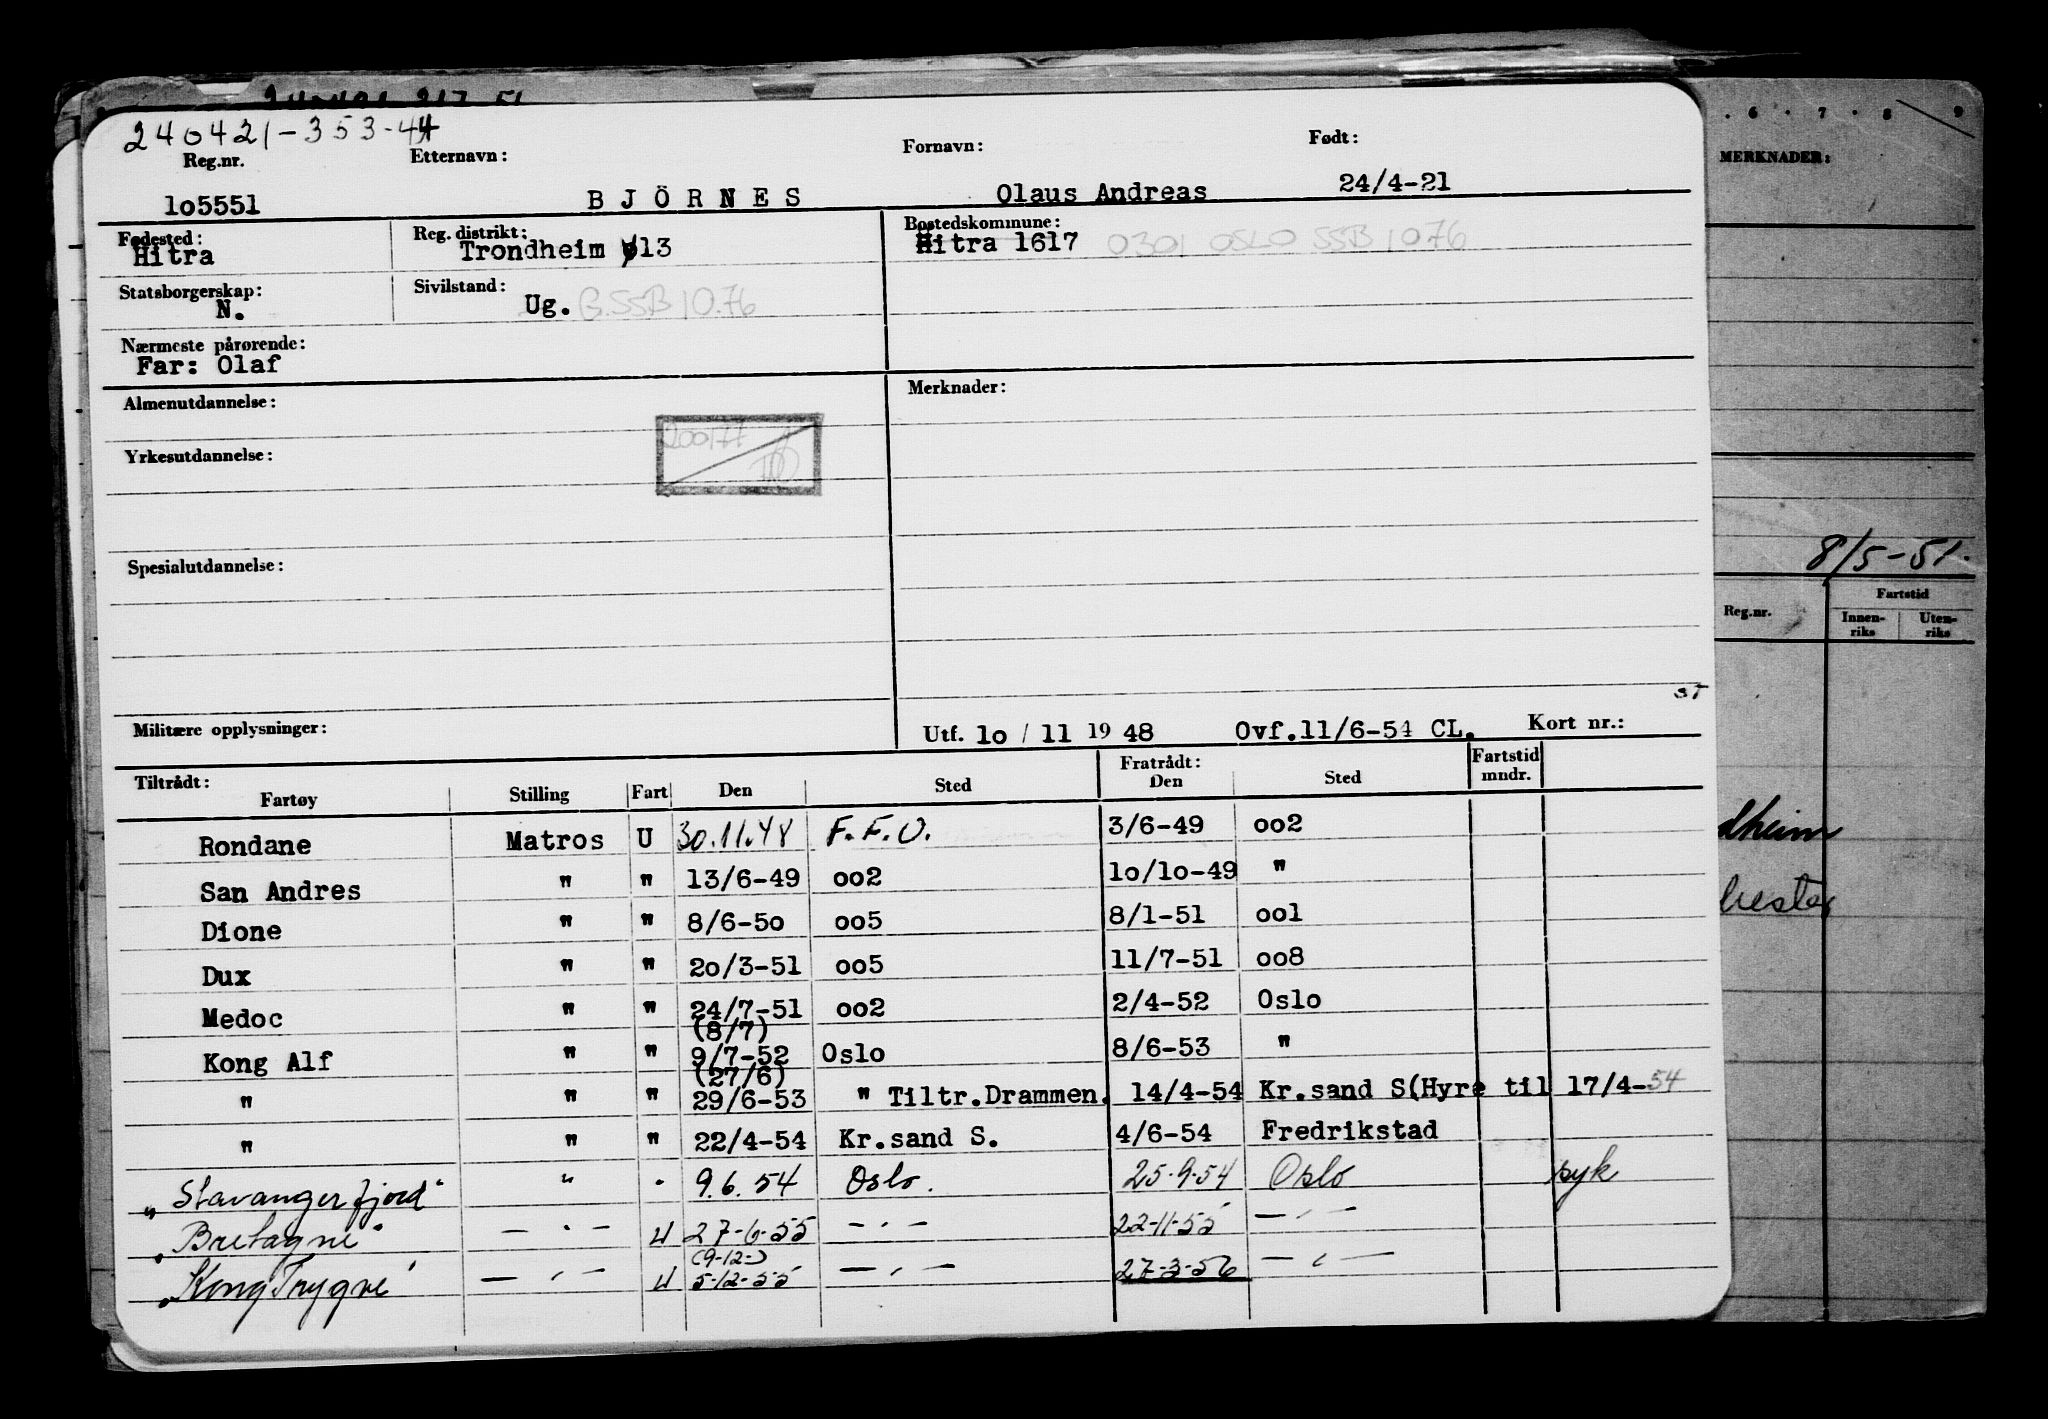 240421-353-44
Reg.nr. Etternavn: Fornavn: Født:
105551 BJÖRNES Olaus Andreas 24/4-21
Fødested: Reg. distrikt: Bostedskommune:
Hitra Trondheim 13 Hitra 1617 0301 OSLO SSB 1076
Statsborgerskap: Sivilstand:
N. Ug. G.SSB 10.76
Nærmeste pårørende:
Far: Olaf
Almenutdannelse: Merknader:
200177
Yrkesutdannelse:
Spesialutdannelse:
Militære opplysninger: Utf. 10 / 11 19 48 Ovf.11/6-54 CL. Kort nr.:
Tiltrådt: Fratrådt: Fartstid mndr.
Fartøy Stilling Fart Den Sted Den Sted
Rondane Matros U 30.11.48 F.F.O. 3/6-49 oo2
San Andres " " 13/6-49 oo2 lo/lo-49 "
Dione " " 8/6-5o oo5 8/1-51 ool
Dux " " 2o/3-51 oo5 11/7-51 oo8
Medoc " " 24/7-51 oo2 2/4-52 Oslo
(8/7)
Kong Alf " " 9/7-52 Oslo 8/6-53 "
(27/6)
" " " 29/6-53 " Tiltr.Drammen. 14/4-54 Kr.sand S(Hyre til 17/4-54
" " " 22/4-54 Kr.sand S. 4/6-54 Fredrikstad
"Stavangerfjord" " " 9.6.54 Oslo. 25-9-54 Oslo syk
"Bretagne" - " - U 27-6-55 - " - 22-11-55 - " -
(9-12-)
"Kong Trygve" - " - U 5-12-55 - " - 27-3-56 - " -
. 6 . 7 . 8 9
MERKNADER:
8/5-51.
Reg.nr. Fartstid
Innen-riks Uten-riks
dheim